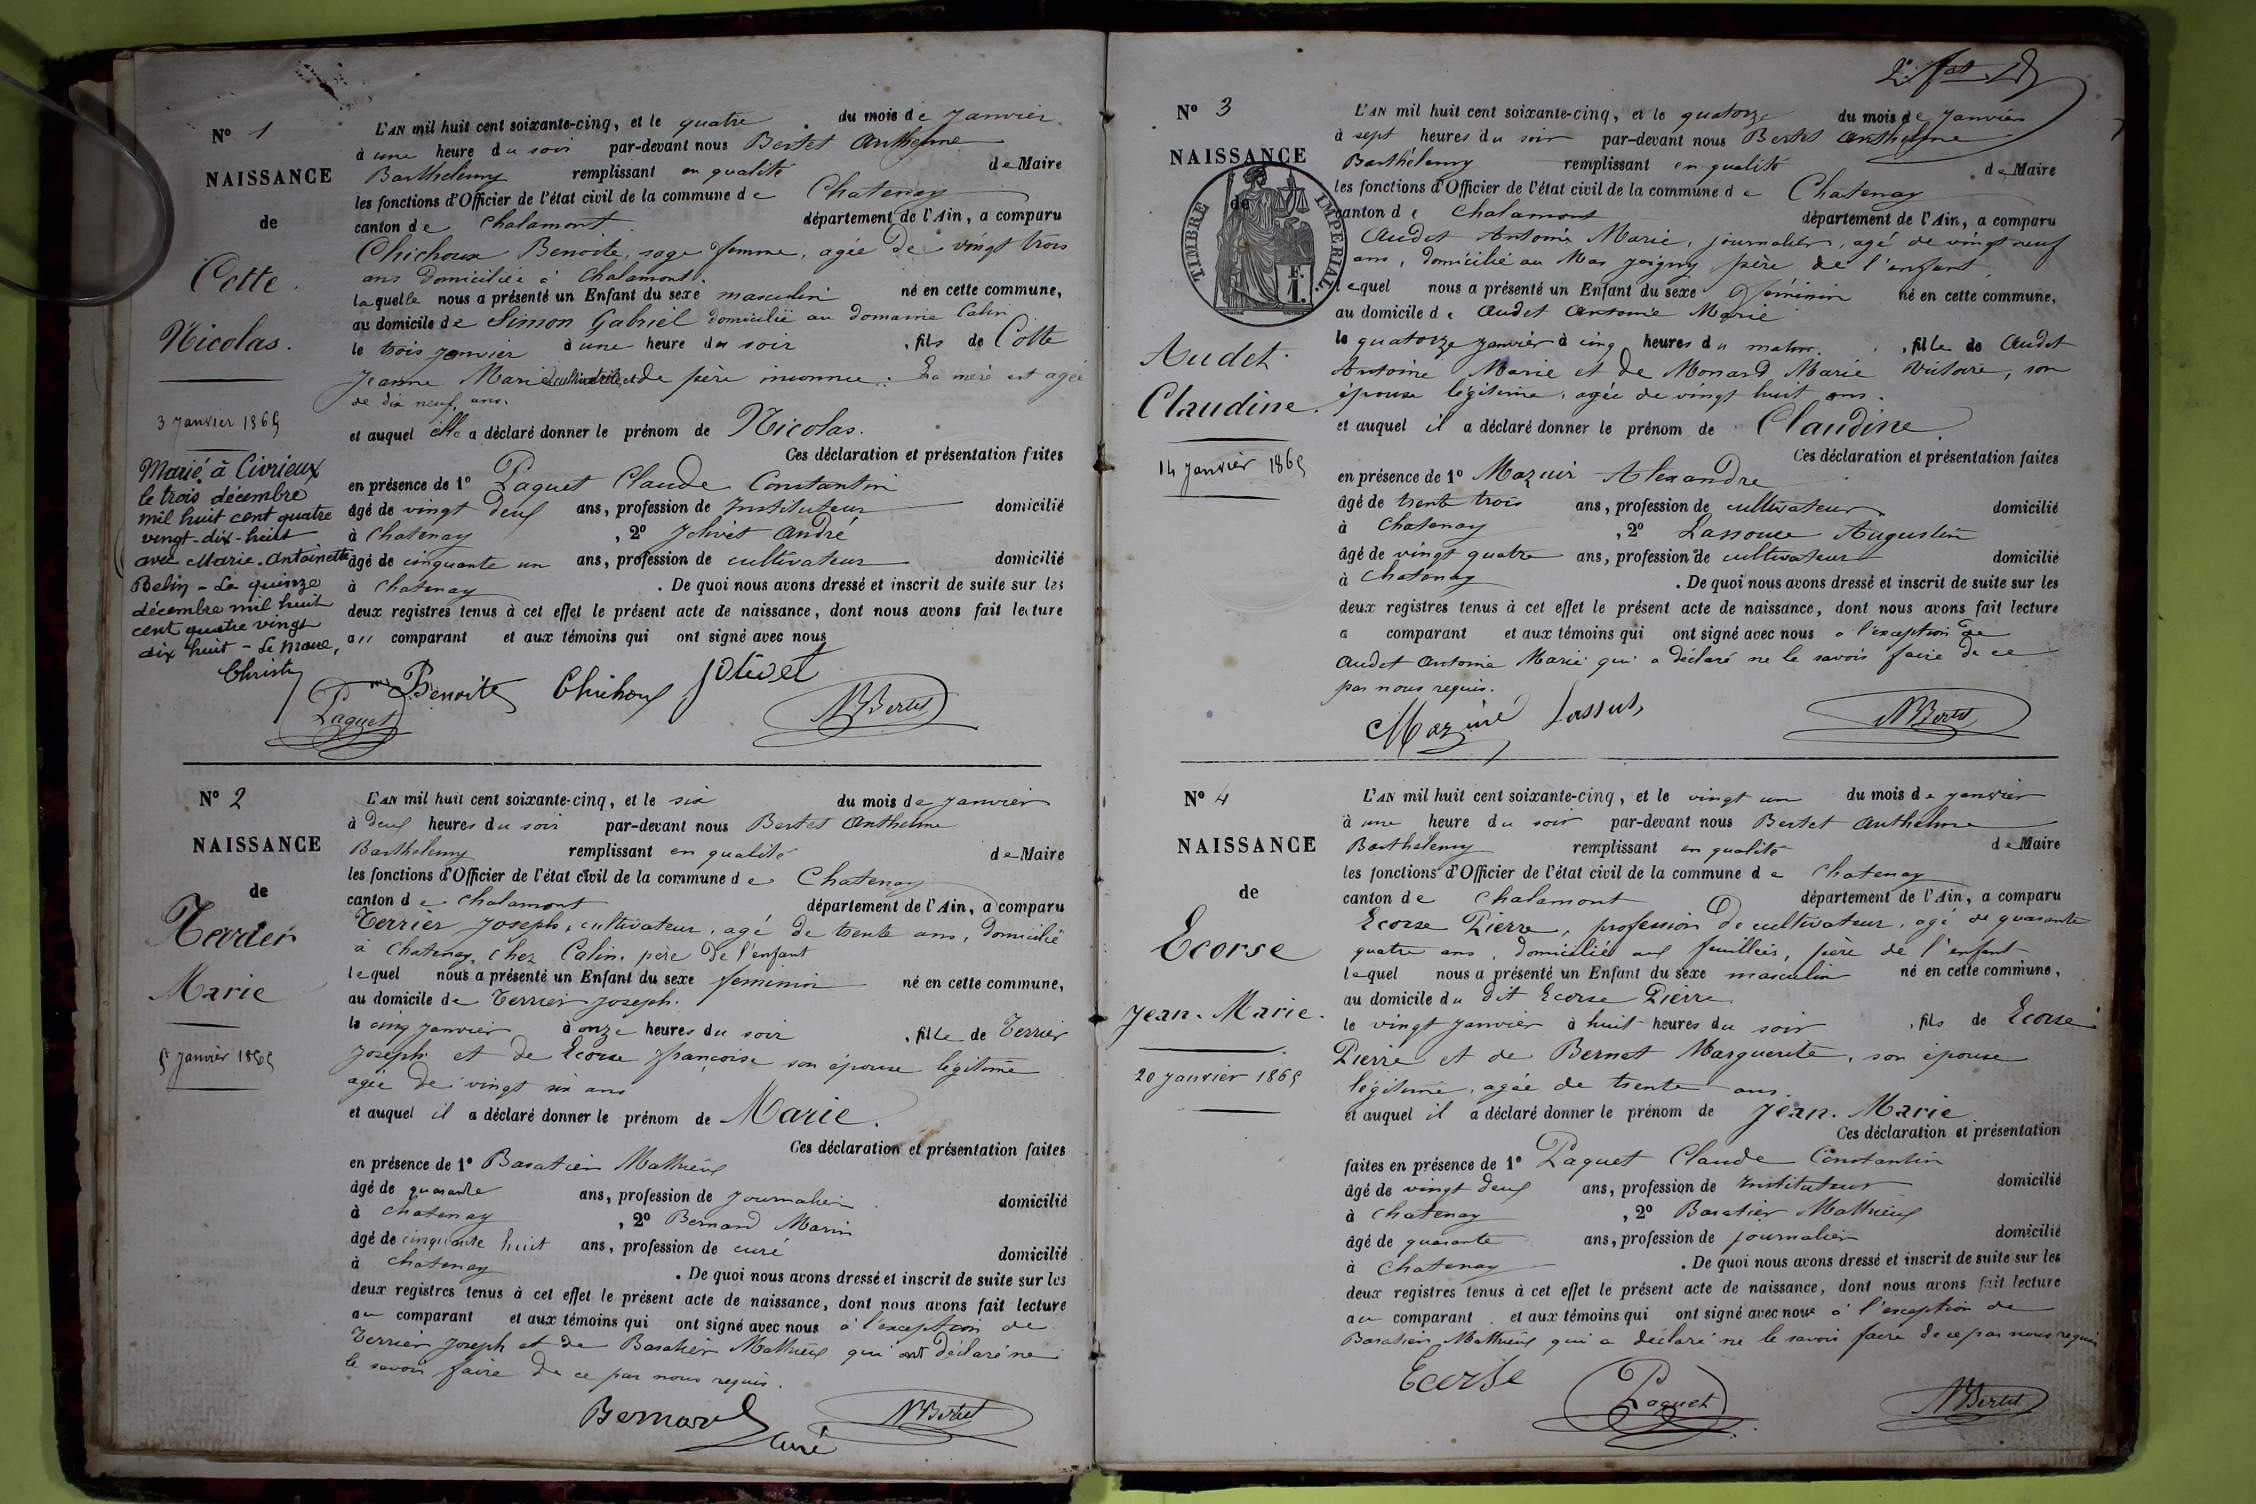 Nº 1
NAISSANCE
de
Cotte
Nicolas.
3 Janvier 1865
Marié à Civrieux
le trois décembre
mil huit cent quatre
vingt-dix-huit
avec Marie-Antoinette
Belin - Le quinze
décembre mil huit
cent quatre vingt
dix huit - Le Maire,
Christy
L'AN mil huit cent soixante-cinq, et le quatre du mois de Janvier
à une heure du soir par-devant nous Bertet Anthelme
Barthélemy remplissant en qualité de Maire
les fonctions d'Officier de l'état civil de la commune de Chatenay
canton de Chalamont département de l'Ain, a comparu
Chichoux Benoite, sage femme, agée de vingt trois
ans domiciliée à Chalamont.
laquelle nous a présenté un Enfant du sexe masculin né en cette commune,
au domicile de Simon Gabriel domicilié au domaine Calin
le trois janvier à une heure du soir , fils de Cotte
Jeanne Marie cultivatrice et de père inconnu. La mère est agée
de dix neuf ans.
et auquel elle a déclaré donner le prénom de Nicolas.
Ces déclaration et présentation faites
en présence de 1º Paquet Claude Constantin
âgé de vingt deux ans, profession de Instituteur domicilié
à Chatenay , 2º Jolivet André
âgé de cinquante un ans, profession de cultivateur domicilié
à Chatenay . De quoi nous avons dressé et inscrit de suite sur les
deux registres tenus à cet effet le présent acte de naissance, dont nous avons fait lecture
au comparant et aux témoins qui ont signé avec nous
Benoite Chichoux Jolivet
Paquet Bertet
Nº 2
NAISSANCE
de
Terrier
Marie
5 Janvier 1865
L'AN mil huit cent soixante-cinq, et le six du mois de janvier
à deux heures du soir par-devant nous Bertet Anthelme
Barthélemy remplissant en qualité de Maire
les fonctions d'Officier de l'état civil de la commune de Chatenay
canton de Chalamont département de l'Ain, a comparu
Terrier Joseph, cultivateur, agé de trente ans, domicilié
à Chatenay, chez Calin, père de l'enfant
lequel nous a présenté un Enfant du sexe feminin né en cette commune,
au domicile de Terrier Joseph.
le cinq janvier à onze heures du soir , fille de Terrier
Joseph et de Ecorse françoise son épouse légitime
agée de vingt six ans
et auquel il a déclaré donner le prénom de Marie.
Ces déclaration et présentation faites
en présence de 1º Baratier Mathieux
âgé de quarante ans, profession de journalier domicilié
à Chatenay , 2º Bernard Marin
âgé de cinquante huit ans, profession de curé domicilié
à Chatenay . De quoi nous avons dressé et inscrit de suite sur les
deux registres tenus à cet effet le présent acte de naissance, dont nous avons fait lecture
au comparant et aux témoins qui ont signé avec nous à l'exception de
Terrier Joseph et de Baratier Mathieux qui ont déclaré ne
le savoir faire de ce par nous requis.
Bernard Bertet
curé
Nº 3
NAISSANCE
de
TIMBRE IMPERIAL
Audet
Claudine.
14 janvier 1865
L'AN mil huit cent soixante-cinq, et le quatorze du mois de Janvier
à sept heures du soir par-devant nous Bertet Anthelme
Barthélemy remplissant en qualité de Maire
les fonctions d'Officier de l'état civil de la commune de Chatenay
canton de Chalamont département de l'Ain, a comparu
Audet Antoine Marie, journalier, agé de vingt neuf
ans, domicilié au Mas Joigny, père de l'enfant
lequel nous a présenté un Enfant du sexe féminin né en cette commune,
au domicile de Audet Antoine Marie
le quatorze janvier à cinq heures du matin , fille de Audet
Antoine Marie et de Monard Marie Victoire, son
épouse légitime, agée de vingt huit ans.
et auquel il a déclaré donner le prénom de Claudine.
Ces déclaration et présentation faites
en présence de 1º Mazuir Alexandre
âgé de trente trois ans, profession de cultivateur domicilié
à Chatenay , 2º Lassouce Augustin
âgé de vingt quatre ans, profession de cultivateur domicilié
à Chatenay . De quoi nous avons dressé et inscrit de suite sur les
deux registres tenus à cet effet le présent acte de naissance, dont nous avons fait lecture
a comparant et aux témoins qui ont signé avec nous à l'exception de
Audet Antoine Marie qui a déclaré ne le savoir faire de ce
par nous requis.
Lassus Bertet
Nº 4
NAISSANCE
de
Ecorse
Jean-Marie.
20 janvier 1865
L'AN mil huit cent soixante-cinq, et le vingt un du mois de janvier
à une heure du soir par-devant nous Bertet Anthelme
Barthélemy remplissant en qualité de Maire
les fonctions d'Officier de l'état civil de la commune de Chatenay
canton de Chalamont département de l'Ain, a comparu
Ecorse Pierre, profession de cultivateur, agé de quarante
quatre ans, domicilié aux feuillées, père de l'enfant
lequel nous a présenté un Enfant du sexe masculin né en cette commune,
au domicile du dit Ecorse Pierre
le vingt janvier à huit heures du soir , fils de Ecorse
Pierre et de Bernet Marguerite, son épouse
légitime, agée de trente ans
et auquel il a déclaré donner le prénom de Jean-Marie
Ces déclaration et présentation
faites en présence de 1º Paquet Claude Constantin
âgé de vingt deux ans, profession de Instituteur domicilié
à Chatenay , 2º Baratier Mathieux
âgé de quarante ans, profession de journalier domicilié
à Chatenay . De quoi nous avons dressé et inscrit de suite sur les
deux registres tenus à cet effet le présent acte de naissance, dont nous avons fait lecture
au comparant et aux témoins qui ont signé avec nous à l'exception de
Baratier Mathieux qui a déclaré ne le savoir faire de ce par nous requis
Ecorse Paquet Bertet